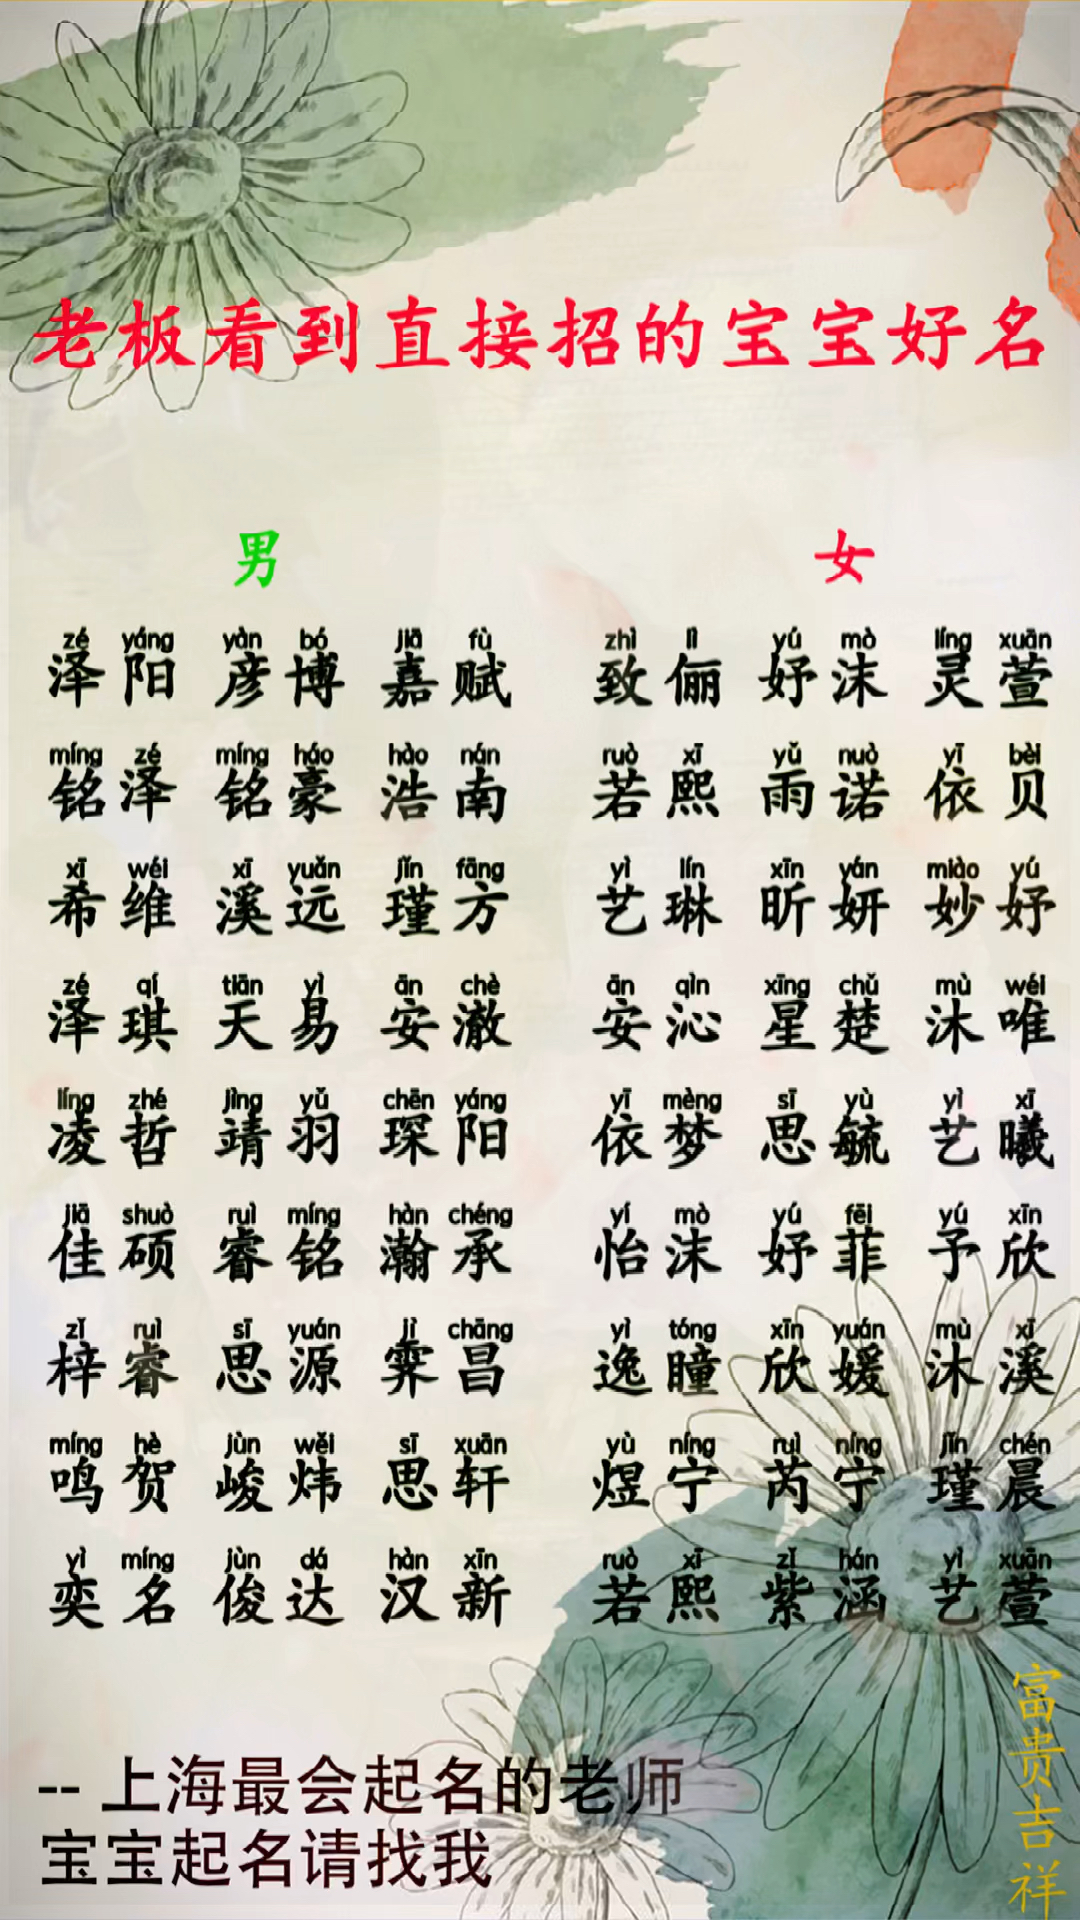 老板看到直接招的宝宝好名
男 女
zé yáng yàn bó jiā fù zhì lì yú mò líng xuān
泽阳 彦博 嘉赋 致俪 妤沫 灵萱
míng zé míng háo hào nán ruò xī yǔ nuò yī bèi
铭泽 铭豪 浩南 若熙 雨诺 依贝
xī wéi xī yuǎn jǐn fāng yì lín xīn yán miào yú
希维 溪远 瑾方 艺琳 昕妍 妙妤
zé qí tiān yì ān chè ān qìn xīng chǔ mù wéi
泽琪 天易 安澈 安沁 星楚 沐唯
líng zhé jìng yǔ chēn yáng yī mèng sī yù yì xī
凌哲 靖羽 琛阳 依梦 思毓 艺曦
jiā shuò ruì míng hàn chéng yí mò yú fēi yú xīn
佳硕 睿铭 瀚承 怡沫 妤菲 予欣
zǐ ruì sī yuán jì chāng yì tóng xīn yuán mù xī
梓睿 思源 霁昌 逸瞳 欣媛 沐溪
míng hè jùn wěi sī xuān yù níng ruì níng jǐn chén
鸣贺 峻炜 思轩 煜宁 芮宁 瑾晨
yì míng jùn dá hàn xīn ruò xī zǐ hán yì xuān
奕名 俊达 汉新 若熙 紫涵 艺萱
-- 上海最会起名的老师
宝宝起名请找我
富贵吉祥